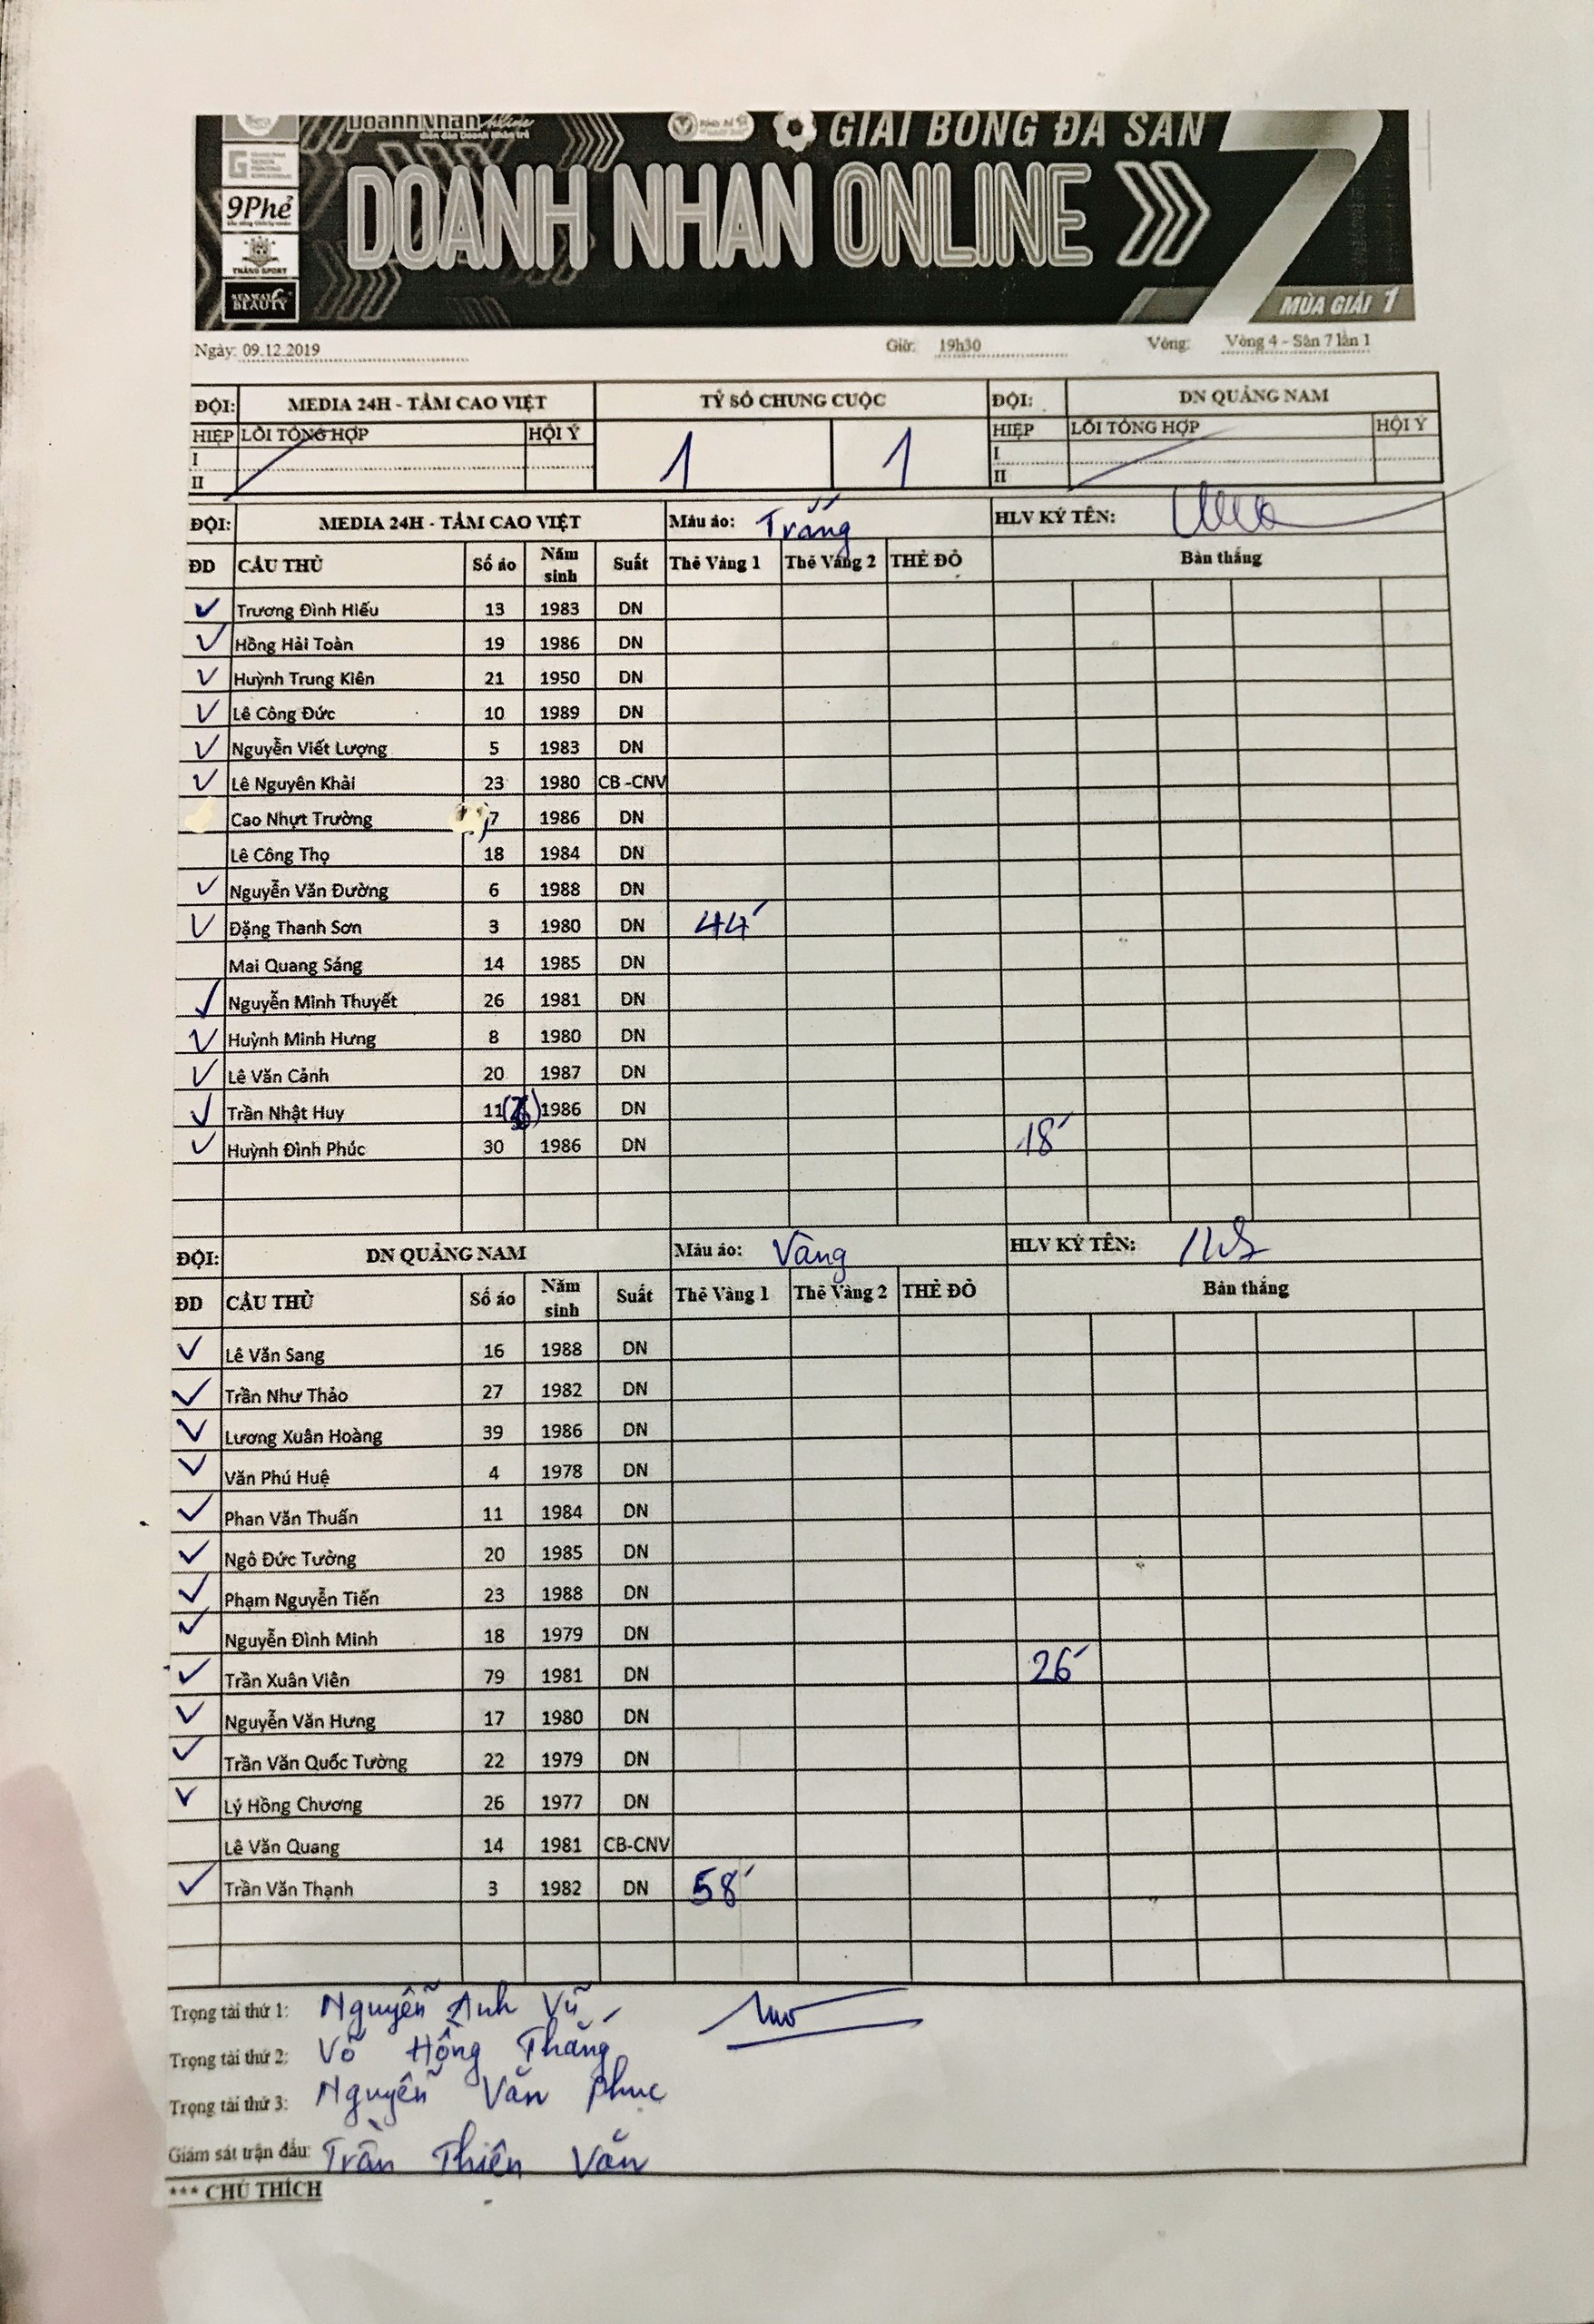 DoanhNhan Online
diễn đàn Doanh Nhân trẻ
GIẢI BÓNG ĐÁ SÂN 7
DOANH NHAN ONLINE
9Phẻ
THĂNG SPORT
BEAUTY
MÙA GIẢI 1
Ngày: 09.12.2019 Giờ: 19h30 Vòng: Vòng 4 - Sân 7 lần 1
ĐỘI: MEDIA 24H - TẦM CAO VIỆT TỶ SỐ CHUNG CUỘC ĐỘI: DN QUẢNG NAM
HIỆP LỖI TỔNG HỢP HỘI Ý 1 1 HIỆP LỖI TỔNG HỢP HỘI Ý
I I
II II
ĐỘI: MEDIA 24H - TẦM CAO VIỆT Màu áo: Trắng HLV KÝ TÊN:
ĐD CẦU THỦ Số áo Năm sinh Suất Thẻ Vàng 1 Thẻ Vàng 2 THẺ ĐỎ Bàn thắng
Trương Đình Hiếu 13 1983 DN
Hồng Hải Toàn 19 1986 DN
Huỳnh Trung Kiên 21 1950 DN
Lê Công Đức 10 1989 DN
Nguyễn Viết Lượng 5 1983 DN
Lê Nguyên Khải 23 1980 CB -CNV
Cao Nhựt Trường 7 1986 DN
Lê Công Thọ 18 1984 DN
Nguyễn Văn Đường 6 1988 DN
Đặng Thanh Sơn 3 1980 DN 44'
Mai Quang Sáng 14 1985 DN
Nguyễn Minh Thuyết 26 1981 DN
Huỳnh Minh Hưng 8 1980 DN
Lê Văn Cảnh 20 1987 DN
Trần Nhật Huy 11 1986 DN
Huỳnh Đình Phúc 30 1986 DN 18'
ĐỘI: DN QUẢNG NAM Màu áo: Vàng HLV KÝ TÊN:
ĐD CẦU THỦ Số áo Năm sinh Suất Thẻ Vàng 1 Thẻ Vàng 2 THẺ ĐỎ Bàn thắng
Lê Văn Sang 16 1988 DN
Trần Như Thảo 27 1982 DN
Lương Xuân Hoàng 39 1986 DN
Văn Phú Huệ 4 1978 DN
Phan Văn Thuấn 11 1984 DN
Ngô Đức Tường 20 1985 DN
Phạm Nguyễn Tiến 23 1988 DN
Nguyễn Đình Minh 18 1979 DN
Trần Xuân Viên 79 1981 DN 26'
Nguyễn Văn Hưng 17 1980 DN
Trần Văn Quốc Tường 22 1979 DN
Lý Hồng Chương 26 1977 DN
Lê Văn Quang 14 1981 CB-CNV
Trần Văn Thạnh 3 1982 DN 58'
Trọng tài thứ 1: Nguyễn Anh Vũ
Trọng tài thứ 2: Võ Hồng Thắng
Trọng tài thứ 3: Nguyễn Văn Phuc
Giám sát trận đấu: Trần Thiên Văn
*** CHÚ THÍCH